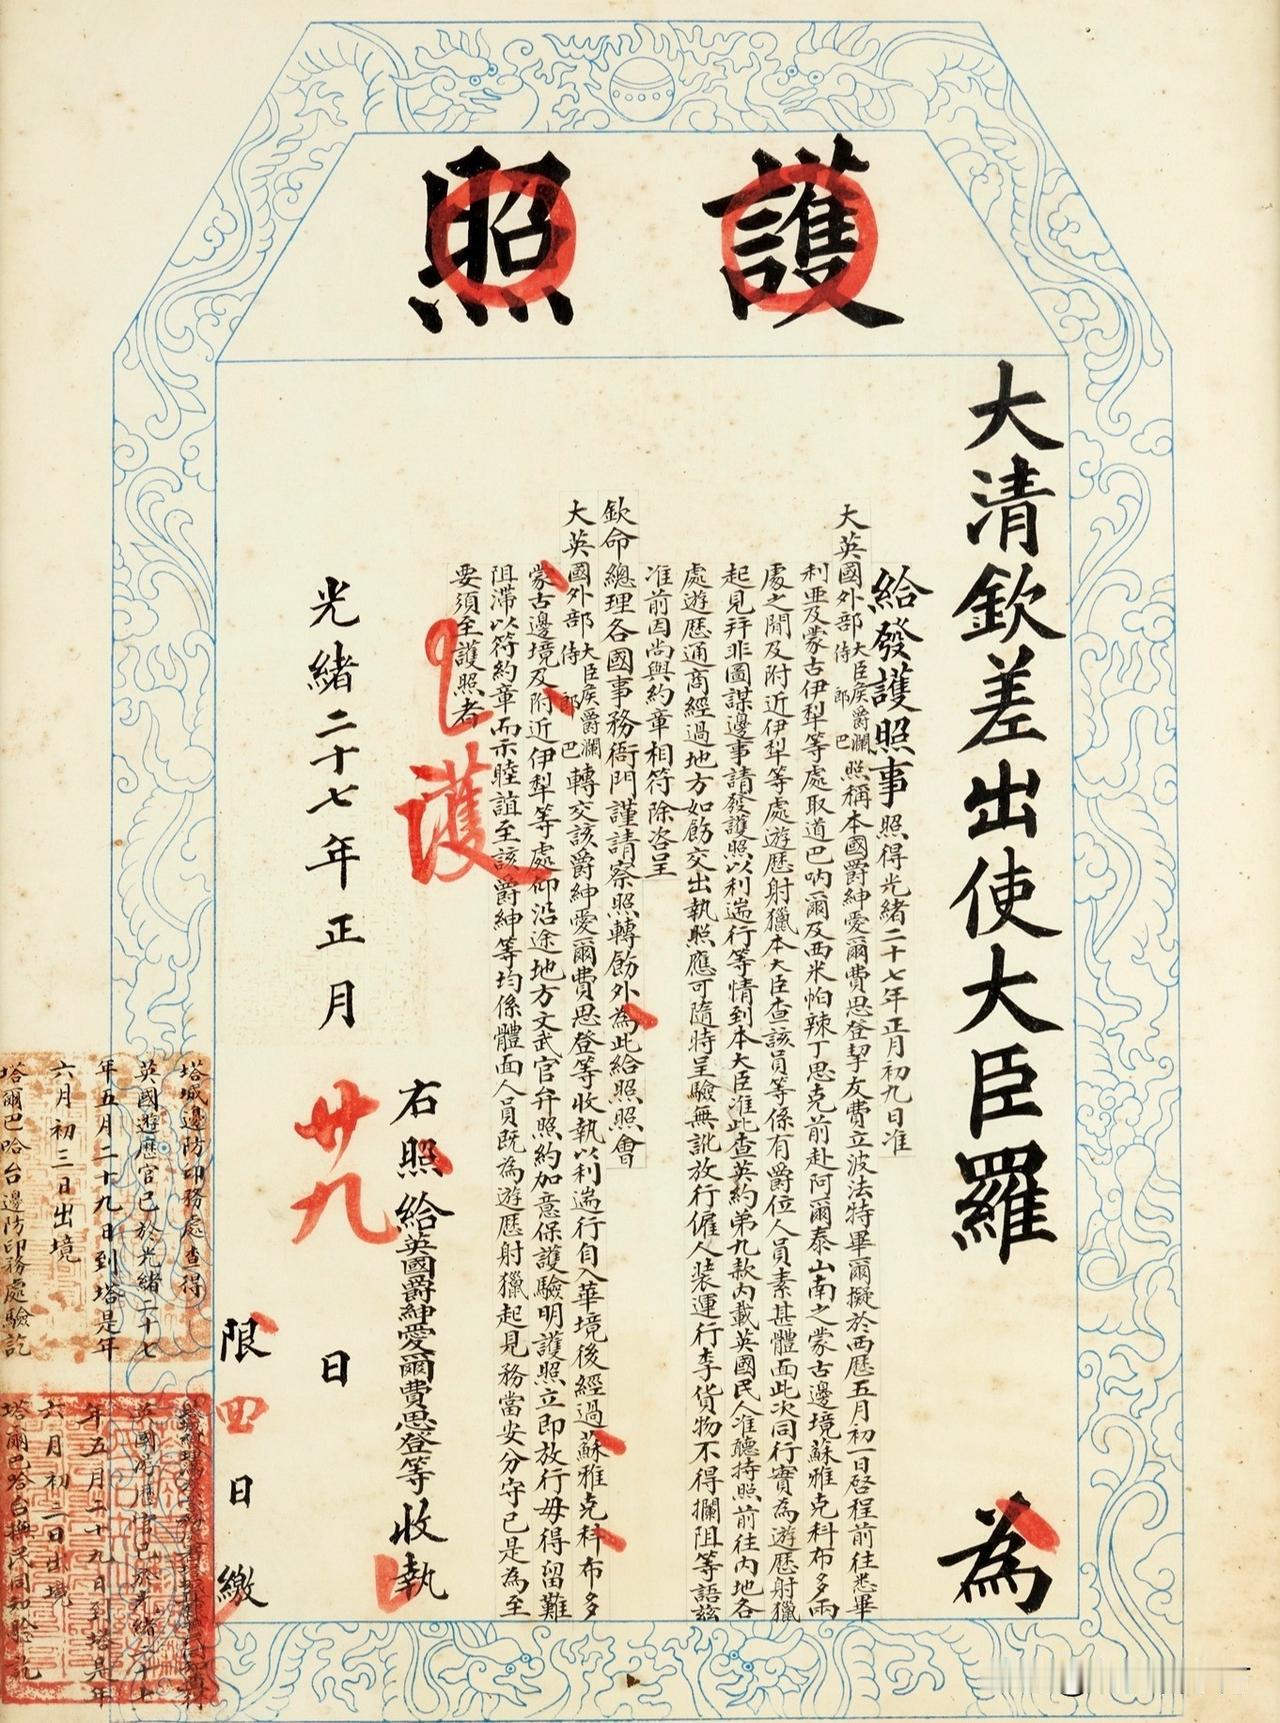 護照
大清欽差出使大臣羅 為
給發護照事照得光緒二十七年正月初九日准
大英國外部大臣侯爵瀾侍郎巴照稱本國爵紳愛爾費思登挈友費立波法特畢爾擬於西歷五月初一日啓程前往悉畢
利亞及蒙古伊犁等處取道巴吶爾及西米帕辣丁思克前赴阿爾泰山南之蒙古邊境蘇雅克科布多兩
處之間及附近伊犁等處遊歷射獵本大臣查該員等係有爵位人員素甚體面此次同行實為遊歷射獵
起見并非圖謀邊事請發護照以利遄行等情到本大臣准此查英約第九款內載英國民人准聽持照前往內地各
處遊歷通商經過地方如飭交出執照應可隨時呈驗無訛放行僱人裝運行李貨物不得攔阻等語茲
准前因尚與約章相符除咨呈
欽命總理各國事務衙門謹請察照轉飭外為此給照照會
大英國外部大臣侯爵瀾侍郎巴轉交該爵紳愛爾費思登等收執以利遄行自入華境後經過蘇雅克科布多
蒙古邊境及附近伊犁等處仰沿途地方文武官弁照約加意保護驗明護照立即放行毋得留難
阻滯以符約章而示睦誼至該爵紳等均係體面人員既為遊歷射獵起見務當安分守己是為至
要須至護照者
護
右照給英國爵紳愛爾費思登等收執
光緒二十七年正月廿九日
限四日繳
塔城邊防印務處查得
英國遊歷官已於光緒二十七
年五月二十九日到塔是年
六月初三日出境
塔爾巴哈台邊防印務處驗訖
英國遊歷官已於光緒二十七
年五月二十九日到塔是年
六月初二日出境
塔爾巴哈台撫民同知驗訖